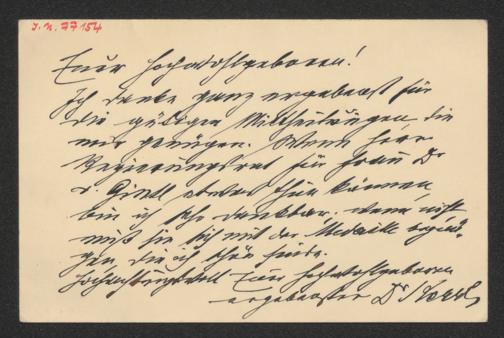 J. N. 77154
Euer Hochwohlgeboren!
Ich danke ganz ergebenst für
die gütigen Mittheilungen, die
mir genügen. Wenn Herr
Regierungsrat für Frau Dr
v. etwas thun können
bin ich sehr dankbar, wenn nicht
muß sie sich mit der Medaille begnü-
gen, die ich schön finde.
Hochachtungsvoll Euer Hochwohlgeboren
ergebenster Dr